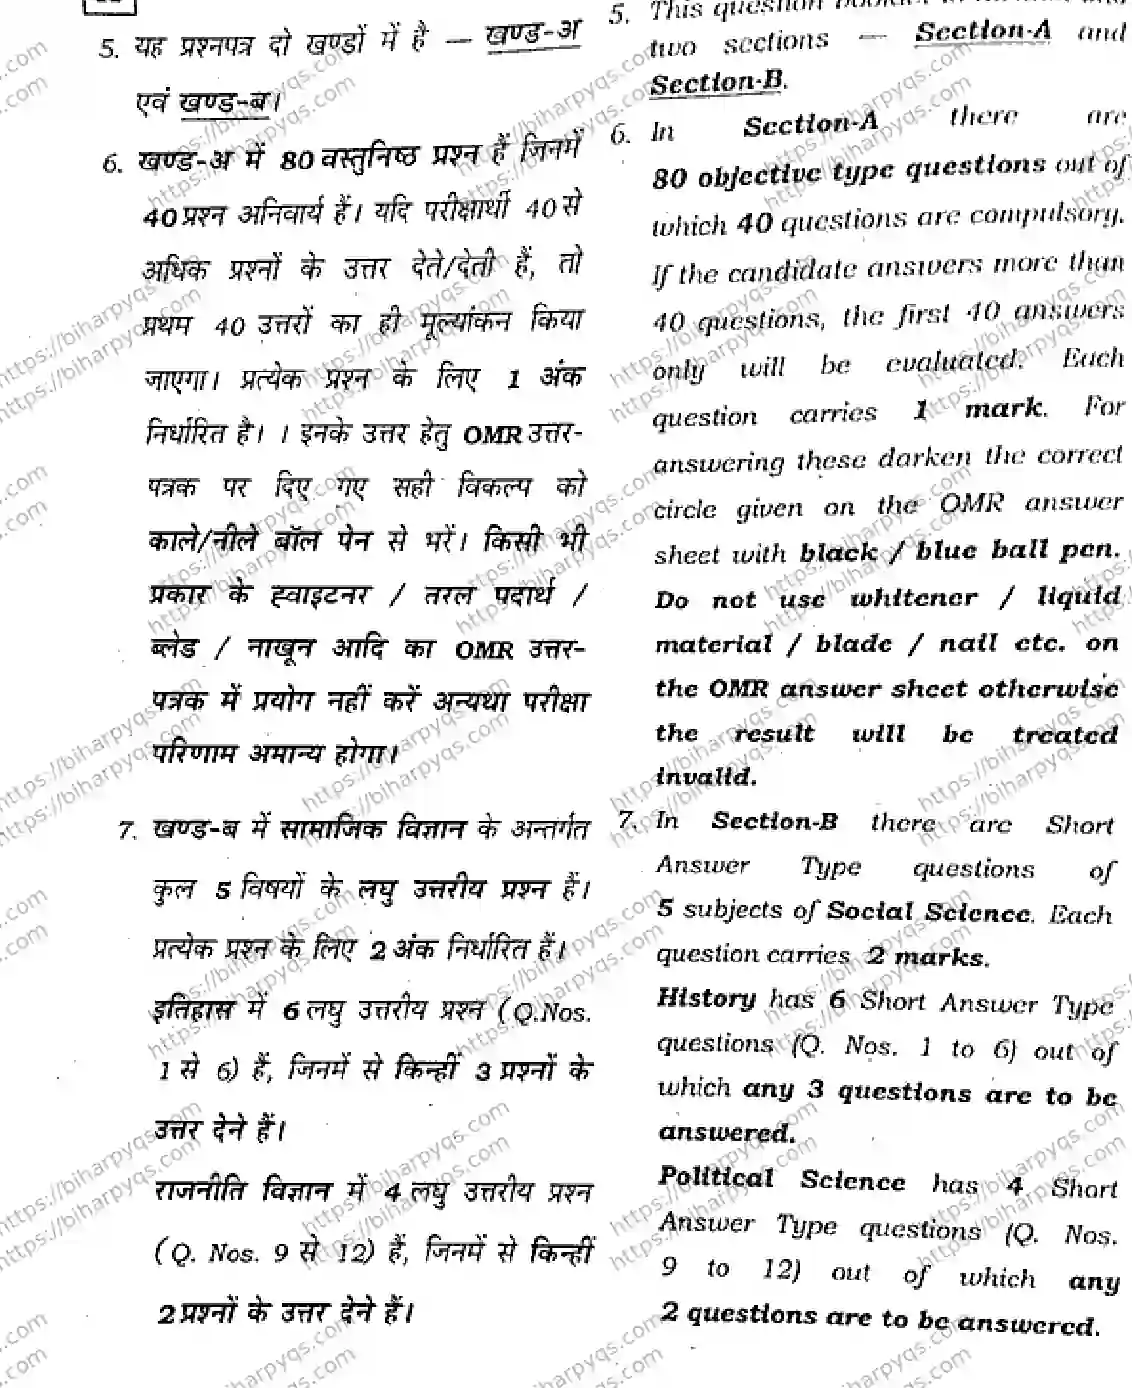 5. यह प्रश्नपत्र दो खण्डों में है — खण्ड-अ
एवं खण्ड-ब।
6. खण्ड-अ में 80 वस्तुनिष्ठ प्रश्न हैं जिनमें
40 प्रश्न अनिवार्य हैं। यदि परीक्षार्थी 40 से
अधिक प्रश्नों के उत्तर देते/देती हैं, तो
प्रथम 40 उत्तरों का ही मूल्यांकन किया
जाएगा। प्रत्येक प्रश्न के लिए 1 अंक
निर्धारित है। । इनके उत्तर हेतु OMR उत्तर-
पत्रक पर दिए गए सही विकल्प को
काले/नीले बॉल पेन से भरें। किसी भी
प्रकार के ह्वाइटनर / तरल पदार्थ /
ब्लेड / नाखून आदि का OMR उत्तर-
पत्रक में प्रयोग नहीं करें अन्यथा परीक्षा
परिणाम अमान्य होगा।
7. खण्ड-ब में सामाजिक विज्ञान के अन्तर्गत
कुल 5 विषयों के लघु उत्तरीय प्रश्न हैं।
प्रत्येक प्रश्न के लिए 2 अंक निर्धारित हैं।
इतिहास में 6 लघु उत्तरीय प्रश्न (Q.Nos.
1 से 6) हैं, जिनमें से किन्हीं 3 प्रश्नों के
उत्तर देने हैं।
राजनीति विज्ञान में 4 लघु उत्तरीय प्रश्न
(Q. Nos. 9 से 12) हैं, जिनमें से किन्हीं
2 प्रश्नों के उत्तर देने हैं।
5. This question
two sections — Section-A and
Section-B.
6. In Section-A there are
80 objective type questions out of
which 40 questions are compulsory.
If the candidate answers more than
40 questions, the first 40 answers
only will be evaluated. Each
question carries 1 mark. For
answering these darken the correct
circle given on the OMR answer
sheet with black / blue ball pen.
Do not use whitener / liquid
material / blade / nail etc. on
the OMR answer sheet otherwise
the result will be treated
invalid.
7. In Section-B there are Short
Answer Type questions of
5 subjects of Social Science. Each
question carries 2 marks.
History has 6 Short Answer Type
questions (Q. Nos. 1 to 6) out of
which any 3 questions are to be
answered.
Political Science has 4 Short
Answer Type questions (Q. Nos.
9 to 12) out of which any
2 questions are to be answered.
https://biharpyqs.com